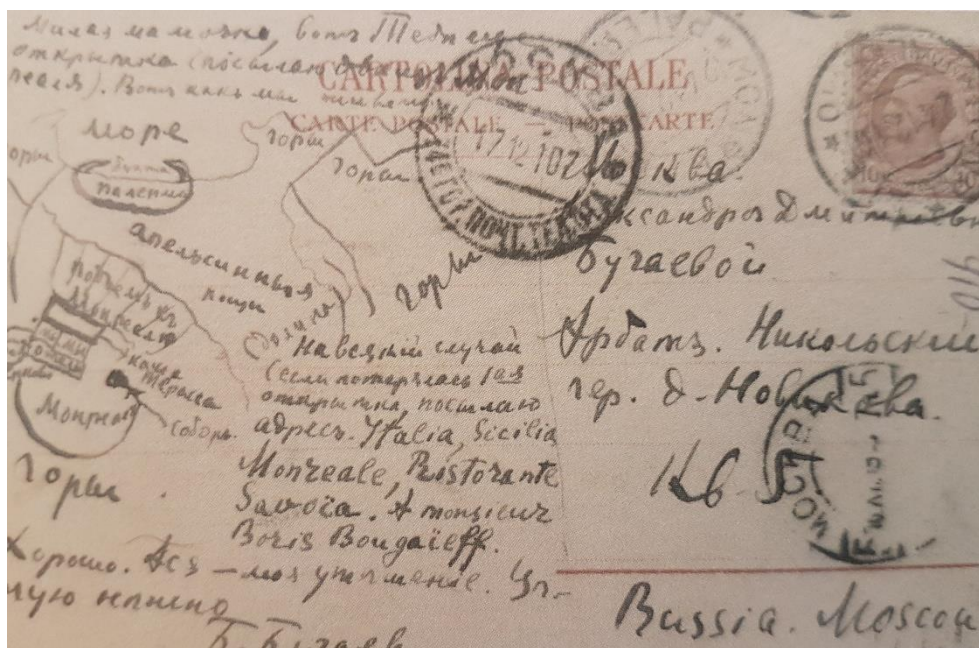 Милая мамочка, вотъ Тебѣ еще
открытка (посылаю
Вотъ какъ мы живемъ
CARTOLINA POSTALE
CARTE POSTALE — POSTKARTE
море
бухта
Палермо
горы
горы
горы
апельсинныя
рощи
(долина)
подъемъ къ
Монреалю
наша
терасса
соборъ
Монреаль
горы
На всякій случай
(если потерялась 1ая
открытка, посылаю
адресъ. Italia, Sicilia
Monreale, Ristorante
Savoïa. A monsieur
Boris Bougaïeff.
Хорошо. Ася — мое утѣшеніе. Цѣ-
лую нѣжно
Б. Бугаев
17 12 10
Москва.
Александрѣ Дмитріевнѣ
Бугаевой
Арбатъ. Никольскій
пер. д. Новикова.
Кв.
МОСКВА
Russia. Moscou
10